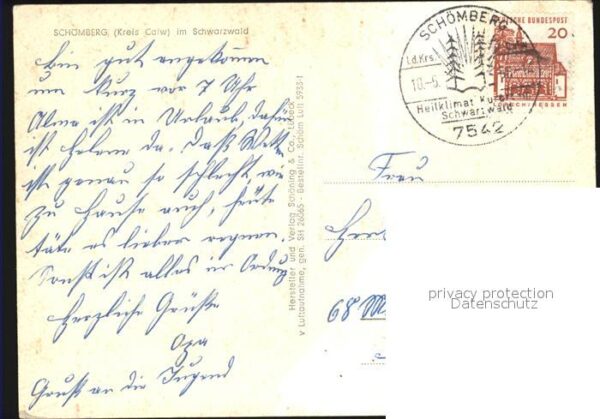 SCHÖMBERG (Kreis Calw) im Schwarzwald
Bin gut angekommen
um kurz vor 7 Uhr
Alma ist in Urlaub, dafür
ist Helene da. Daß Wetter
ist genau so schlecht wie
zu Hause auch, heute
täte es lieber regnen.
Sonst ist alles in Ordnung
Herzliche Grüße
Opa
Gruß an die Jugend
Hersteller und Verlag Schöning & Co., Lübeck
v Luftaufnahme, gen. SH 26065 - Bestellnr. Schöm Luft 5933-1
SCHÖMBERG
Ld.Krs.
10.-5.
Heilklimat Kurort
Schwarzwald
7542
DEUTSCHE BUNDESPOST
20
LORSCH/HESSEN
Frau
68 M
privacy protection
Datenschutz